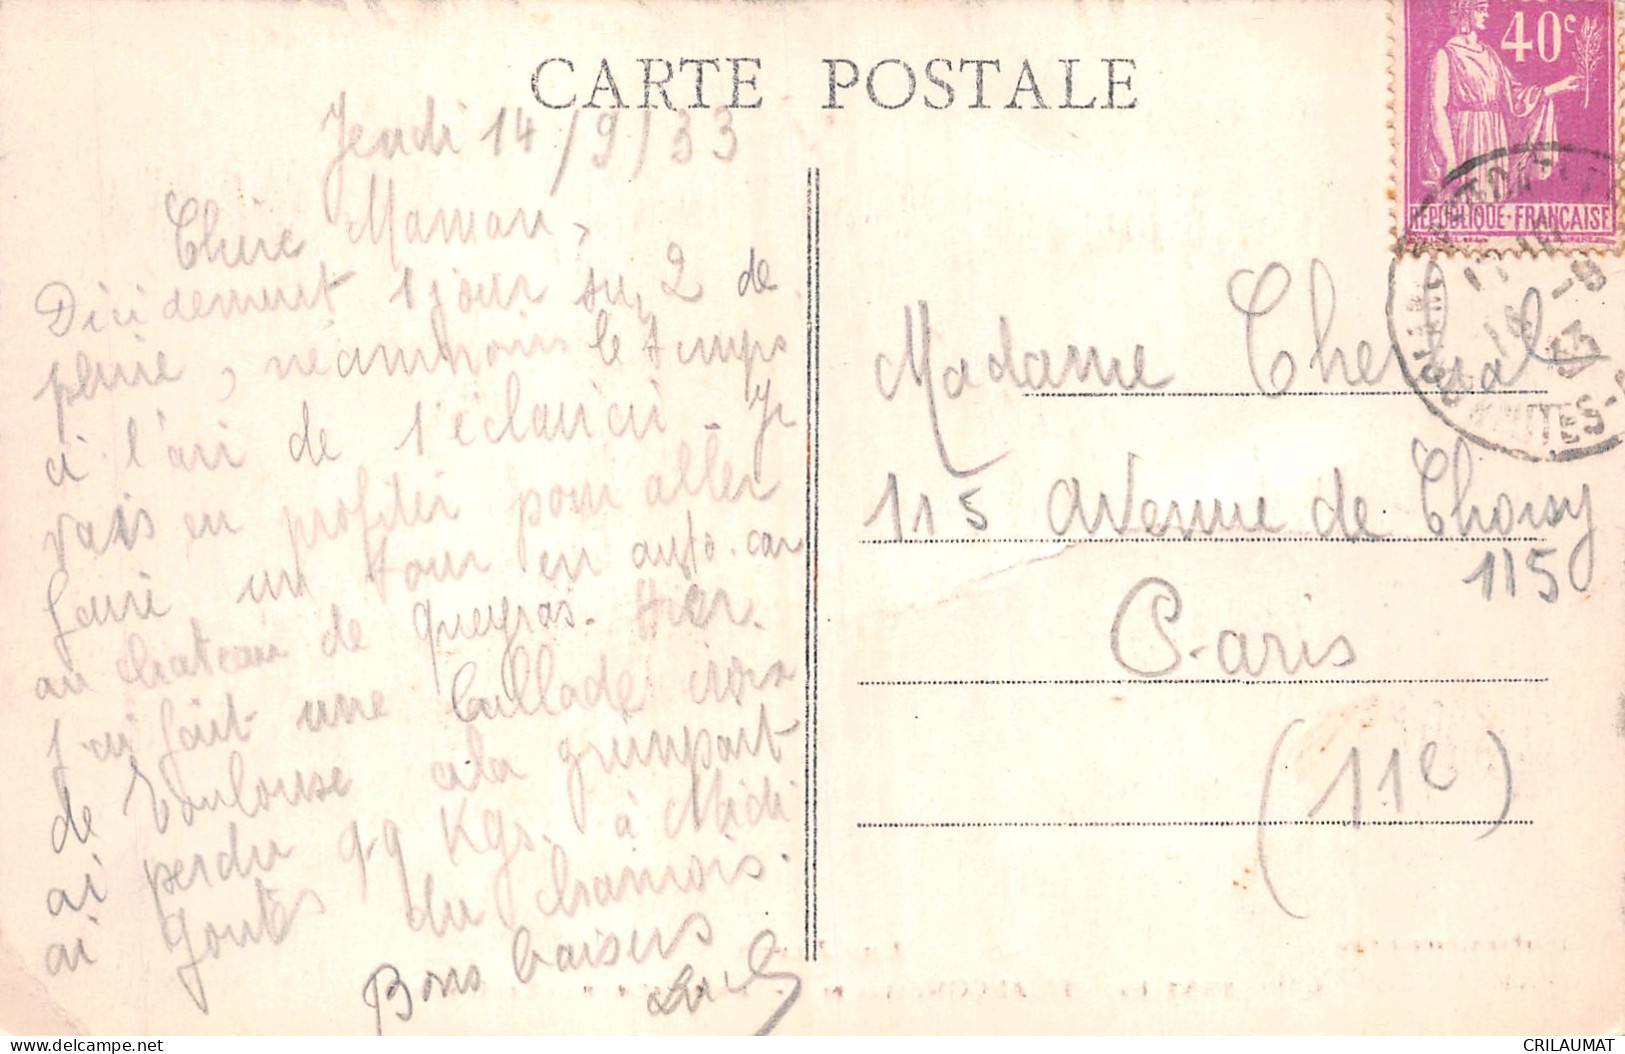 CARTE POSTALE
40c
REPUBLIQUE-FRANÇAISE
Jeudi 14/9/33
Chère Maman,
Décidement 1 jour sur 2 de
pluie, néanmoins le temps
a l'air de s'éclaircir. Je
vais en profiter pour aller
faire un tour en auto-car
au chateau de Queyras. Hier
j'ai fait une ballade
de Toulouse a la grimpart
ai perdu 99 Kgs. à Midi
ai goutés du chamois.
Bons baisers
Madame
115 Avenue de Choisy
115
Paris
(11e)
CRILAUMAT